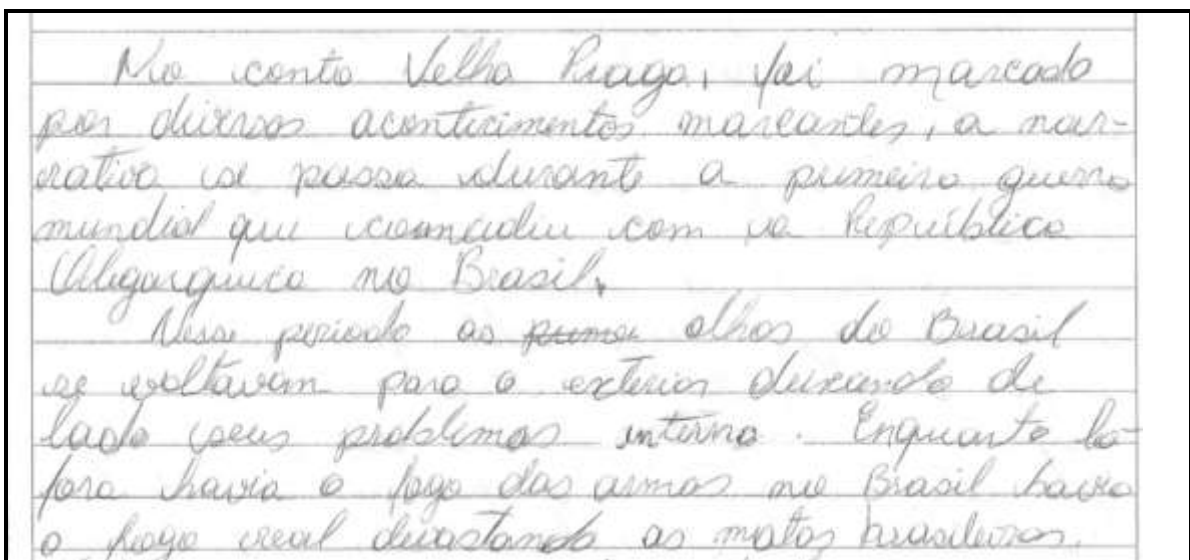 No conto Velha Praga, foi marcado
por diversos acontecimentos marcantes, a nar-
rativa se passa durante a primeira guerra
mundial que coincidiu com a República
Oligarquica no Brasil.
Nesse periodo os olhos do Brasil
se voltavam para o exterior deixando de
lado seus problemas interno. Enquanto lá
fora havia o fogo das armas no Brasil havia
o fogo real devastando as matas brasileiras.